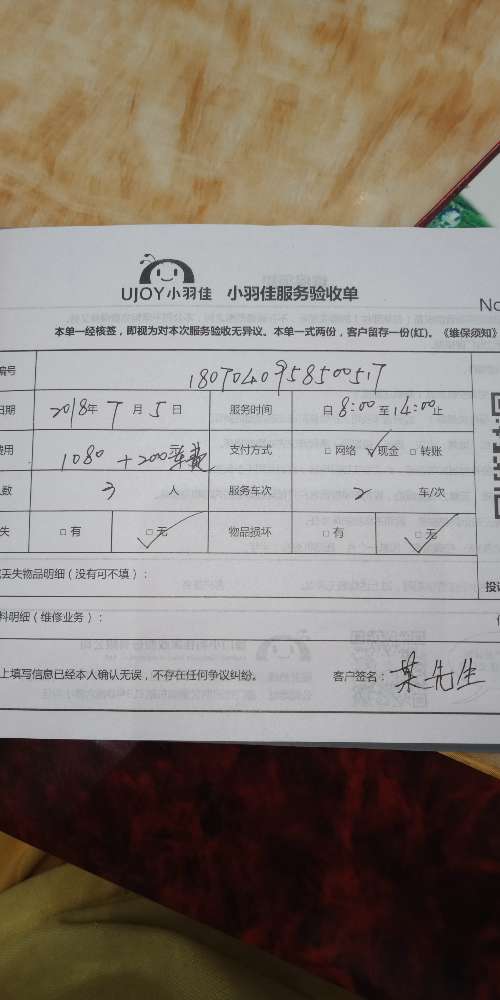 UJOY小羽佳 小羽佳服务验收单
No
本单一经核签，即视为对本次服务验收无异议。本单一式两份，客户留存一份(红)。《维保须知》
编号 1807040958500517
日期 2018年 7 月 5 日 服务时间 自 8:00 至 14:00 止
费用 1080 + 200车费 支付方式 □ 网络 □ 现金 □ 转账
人数 3 人 服务车次 2 车/次
失 □ 有 □ 无 物品损坏 □ 有 □ 无
丢失物品明细（没有可不填）：
投诉
料明细（维修业务）：
上填写信息已经本人确认无误，不存在任何争议纠纷。 客户签名：某先生